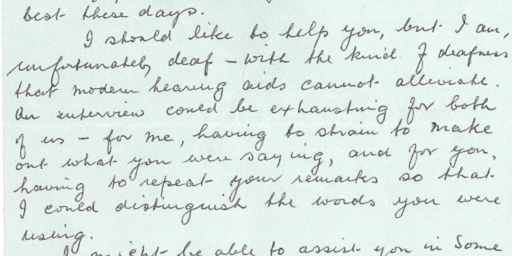 best these days.
I should like to help you, but I am,
unfortunately, deaf – with the kind of deafness
that modern hearing aids cannot alleviate.
An interview could be exhausting for both
of us – for me, having to strain to make
out what you were saying, and for you,
having to repeat your remarks so that
I could distinguish the words you were
using.
I might be able to assist you in some